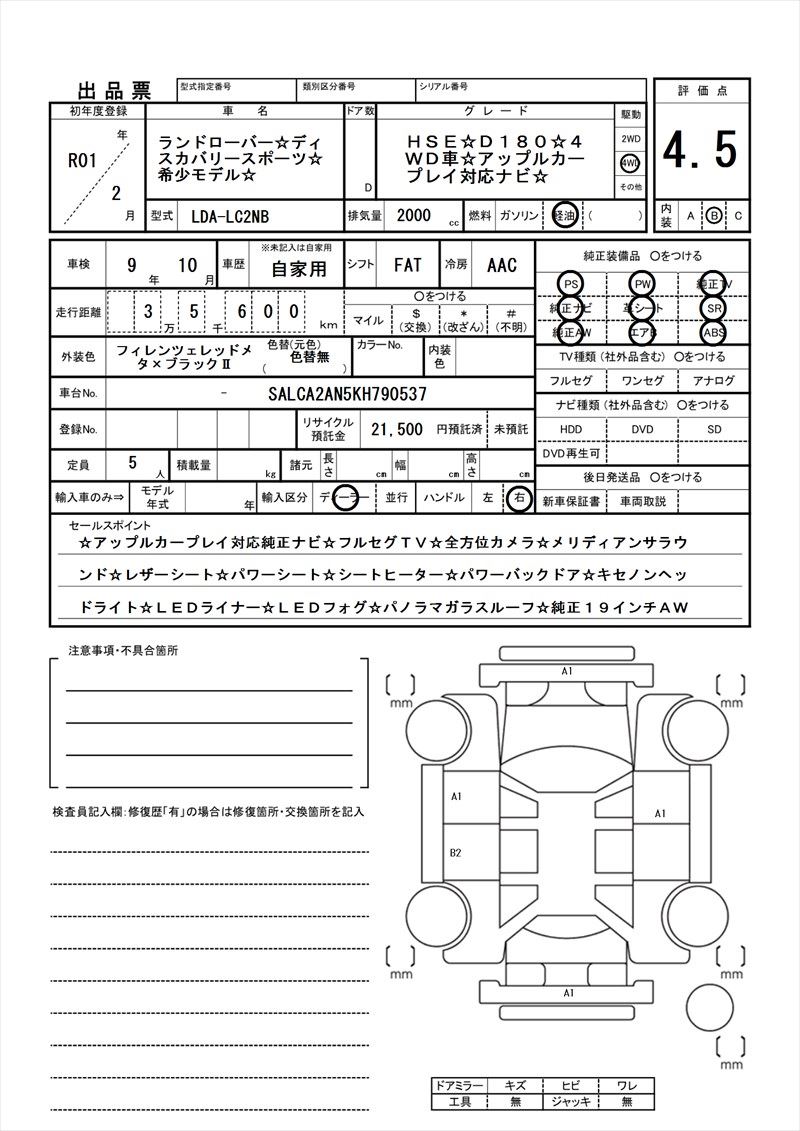 出品票
型式指定番号 類別区分番号 シリアル番号
評価点
初年度登録 車名 ドア数 グレード 駆動
R01 年 2 月
ランドローバー☆ディ
スカバリースポーツ☆
希少モデル☆
D
HSE☆D180☆4
WD車☆アップルカー
プレイ対応ナビ☆
2WD
4WD
その他
4.5
型式 LDA-LC2NB 排気量 2000 cc 燃料 ガソリン 軽油 ( )
内装 A B C
車検 9 年 10 月 車歴 ※未記入は自家用 自家用 シフト FAT 冷房 AAC
純正装備品 ○をつける
PS PW 純正TV
純正ナビ 革シート SR
純正AW エアB ABS
走行距離 3 万 5 千 6 0 0 km
○をつける
マイル $ (交換) * (改ざん) # (不明)
外装色 フィレンツェレッドメ
タ×ブラックⅡ
色替(元色)
( 色替無 )
カラーNo. 内装色
TV種類(社外品含む) ○をつける
フルセグ ワンセグ アナログ
車台No. - SALCA2AN5KH790537
ナビ種類(社外品含む) ○をつける
HDD DVD SD
DVD再生可
登録No. リサイクル預託金 21,500 円預託済 未預託
定員 5 人 積載量 kg 諸元 長さ cm 幅 cm 高さ cm
後日発送品 ○をつける
新車保証書 車両取説
輸入車のみ⇒ モデル年式 年 輸入区分 ディーラー 並行 ハンドル 左 右
セールスポイント
☆アップルカープレイ対応純正ナビ☆フルセグTV☆全方位カメラ☆メリディアンサラウ
ンド☆レザーシート☆パワーシート☆シートヒーター☆パワーバックドア☆キセノンヘッ
ドライト☆LEDライナー☆LEDフォグ☆パノラマガラスルーフ☆純正19インチAW
注意事項・不具合箇所
検査員記入欄:修復歴「有」の場合は修復箇所・交換箇所を記入
A1
mm
mm
A1
A1
B2
mm
mm
A1
mm
ドアミラー キズ ヒビ ワレ
工具 無 ジャッキ 無